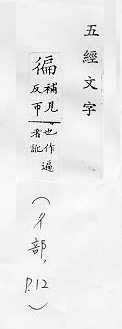 五經文字
徧
補見
反帀
也作遍
者訛
(彳部, P.12)